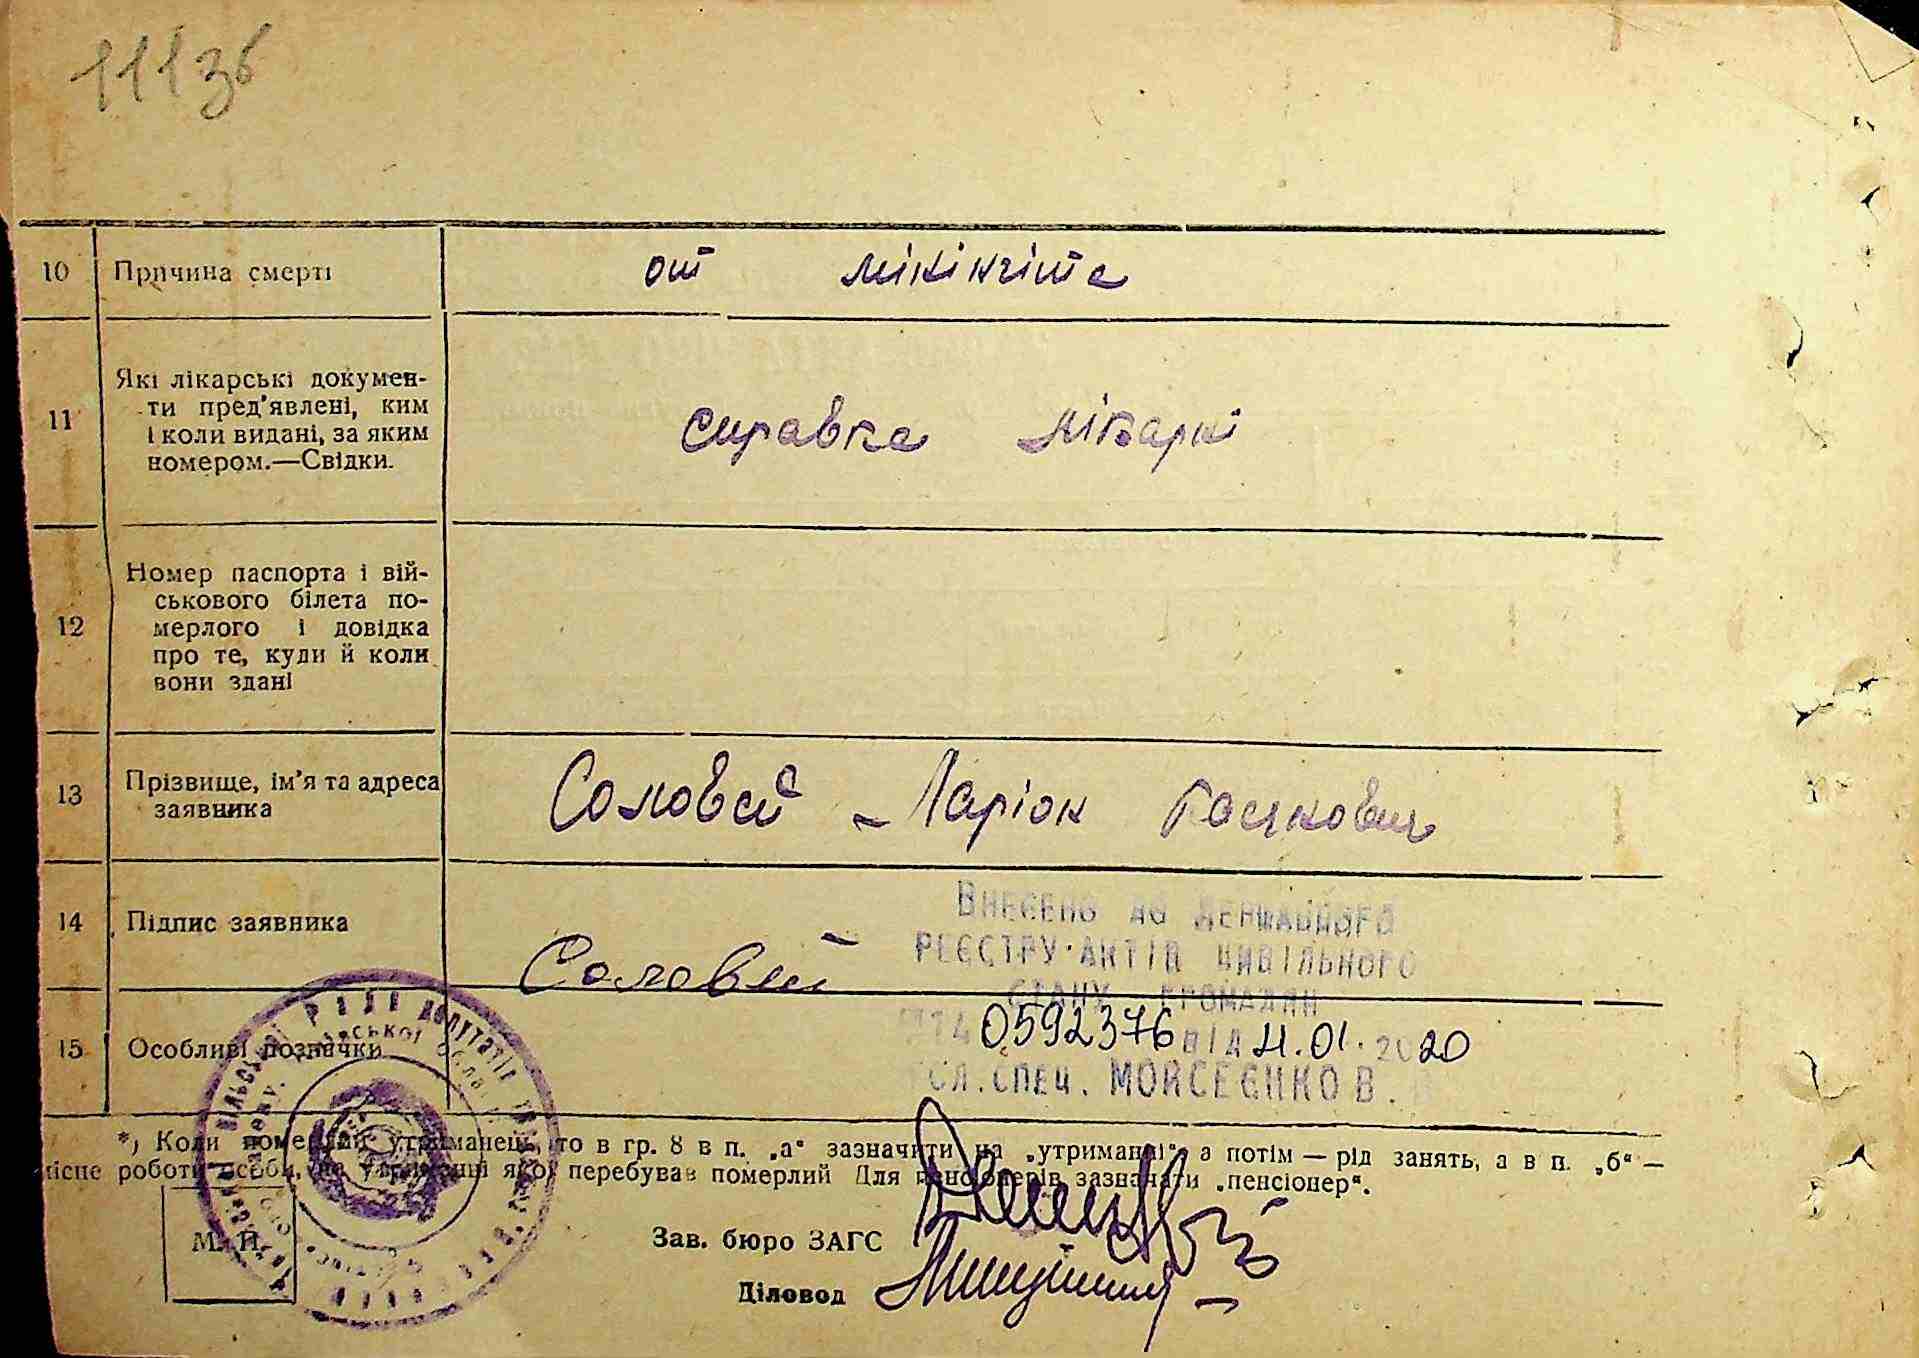 111зв
10 Причина смерті
от мінінгіта
11 Які лікарські докумен-
ти пред'явлені, ким
і коли видані, за яким
номером.—Свідки.
справка лікарні
12 Номер паспорта і вій-
ськового білета по-
мерлого і довідка
про те, куди й коли
вони здані
13 Прізвище, ім'я та адреса
заявника
Соловей Ларіон
14 Підпис заявника
Соловей
Внесено до державного
реєстру актів цивільного
стану громадян
0592376 від 11.01.2020
сл. спец. Моисеєнко В.
15 Особливі позначки
*) Коли померлий утриманець, то в гр. 8 в п. „а" зазначити на „утриманні", а потім — рід занять, а в п. „б" —
місце роботи особи, на утриманні якої перебував померлий Для пенсіонерів зазначати „пенсіонер".
М. П.
Зав. бюро ЗАГС
Діловод